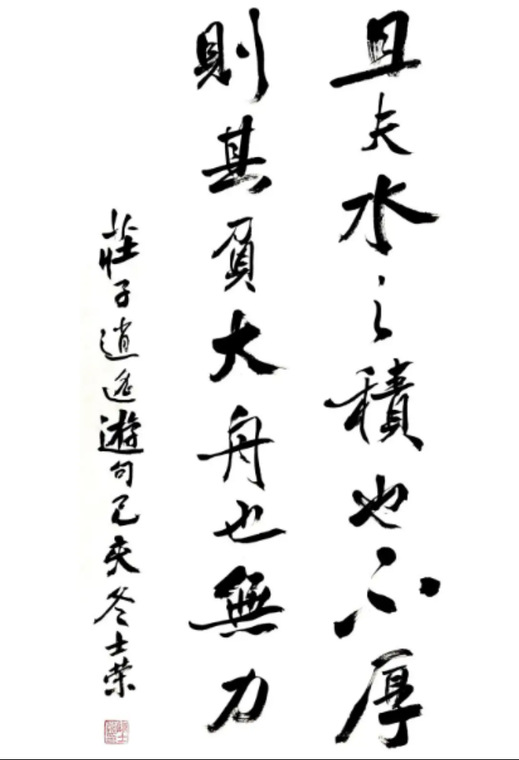 且夫水之積也不厚
則其負大舟也無力
莊子逍遙遊句己亥冬士榮